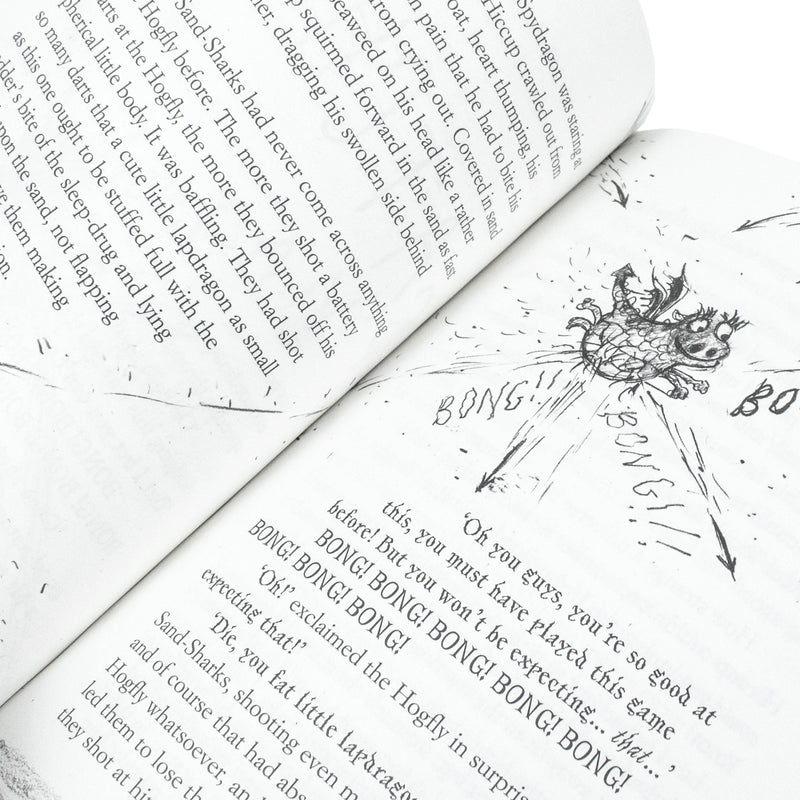 Spydragon was staring at
Hiccup crawled out from
oat, heart thumping, his
n pain that he had to bite his
from crying out. Covered in sand
seaweed on his head like a rather
p squirmed forward in the sand as fast
her, dragging his swollen side behind
Sand-Sharks had never come across anything
Hogfly before. The more they shot a battery
arts at the Hogfly, the more they bounced off his
pherical little body. It was baffling. They had shot
so many darts that a cute little lapdragon as small
as this one ought to be stuffed full with the
dder's bite of the sleep-drug and lying
upon the sand, not flapping
ve them making
ion.
BONG!!
BONG!!!
BO
'Oh you guys, you're so good at
this, you must have played this game
before! But you won't be expecting... that...'
BONG! BONG! BONG! BONG! BONG! BONG!
BONG! BONG! BONG!
'Oh!' exclaimed the Hogfly in surpris
expecting that!'
'Die, you fat little lapdrago
Sand-Sharks, shooting even m
and of course that had abs
Hogfly whatsoever, an
led them to lose th
they shot at hi